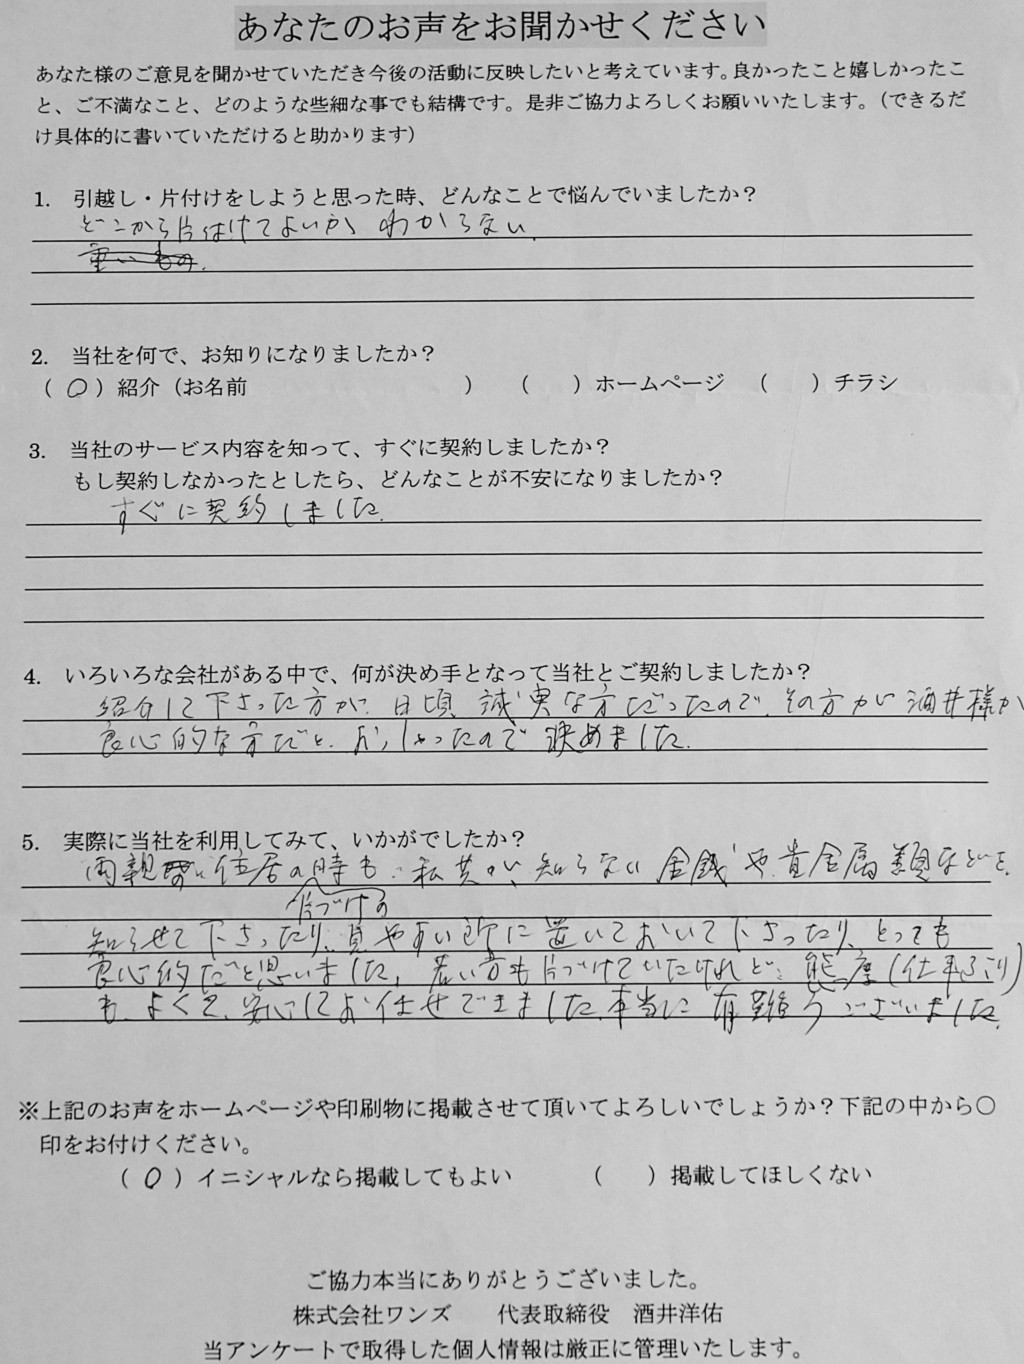 あなたのお声をお聞かせください
あなた様のご意見を聞かせていただき今後の活動に反映したいと考えています。良かったこと嬉しかったこ
と、ご不満なこと、どのような些細な事でも結構です。是非ご協力よろしくお願いいたします。（できるだ
け具体的に書いていただけると助かります）
1. 引越し・片付けをしようと思った時、どんなことで悩んでいましたか？
どこから片付けてよいか わからない.
重いもの.
2. 当社を何で、お知りになりましたか？
（ ○ ）紹介（お名前 ） （ ）ホームページ （ ）チラシ
3. 当社のサービス内容を知って、すぐに契約しましたか？
もし契約しなかったとしたら、どんなことが不安になりましたか？
すぐに契約しました.
4. いろいろな会社がある中で、何が決め手となって当社とご契約しましたか？
紹介して下さった方が、日頃 誠実な方だったので、その方が酒井様が
良心的な方だと、おっしゃったので決めました.
5. 実際に当社を利用してみて、いかがでしたか？
両親 住居の時も、私共が、知らない金銭や貴金属類などを、
片づけの
知らせて下さったり、見やすい所に置いておいて下さったり、とっても
良心的だと思いました。若い方も片づけていたけれど、態度(仕事ぶり)
も、よくて、安心してお任せできました.本当に有難うございました.
※上記のお声をホームページや印刷物に掲載させて頂いてよろしいでしょうか？下記の中から○
印をお付けください。
（ ○ ）イニシャルなら掲載してもよい （ ）掲載してほしくない
ご協力本当にありがとうございました。
株式会社ワンズ 代表取締役 酒井洋佑
当アンケートで取得した個人情報は厳正に管理いたします。